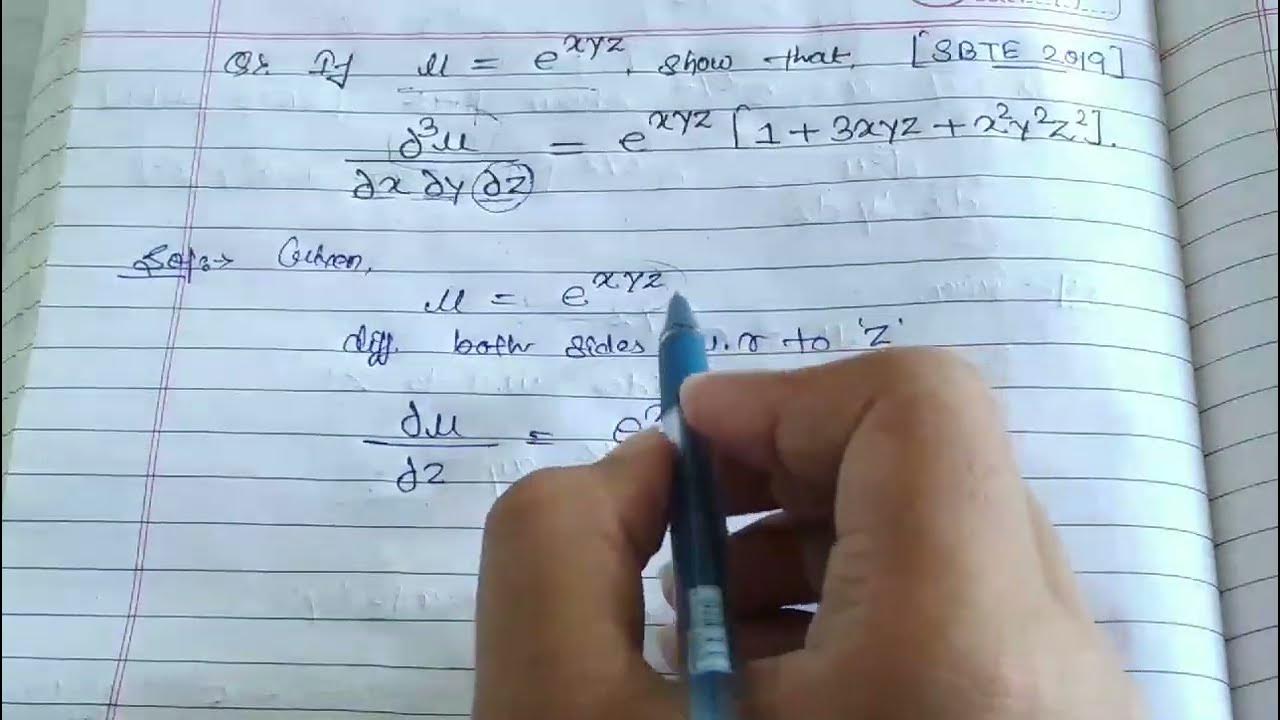 Q1. If u = e^{xyz}, show that, [SBTE 2019]
∂³u / ∂x ∂y ∂z = e^{xyz} [1 + 3xyz + x²y²z²].
Sol:→ Given,
u = e^{xyz}
diff. both sides w.r to 'z'
∂u / ∂z = e